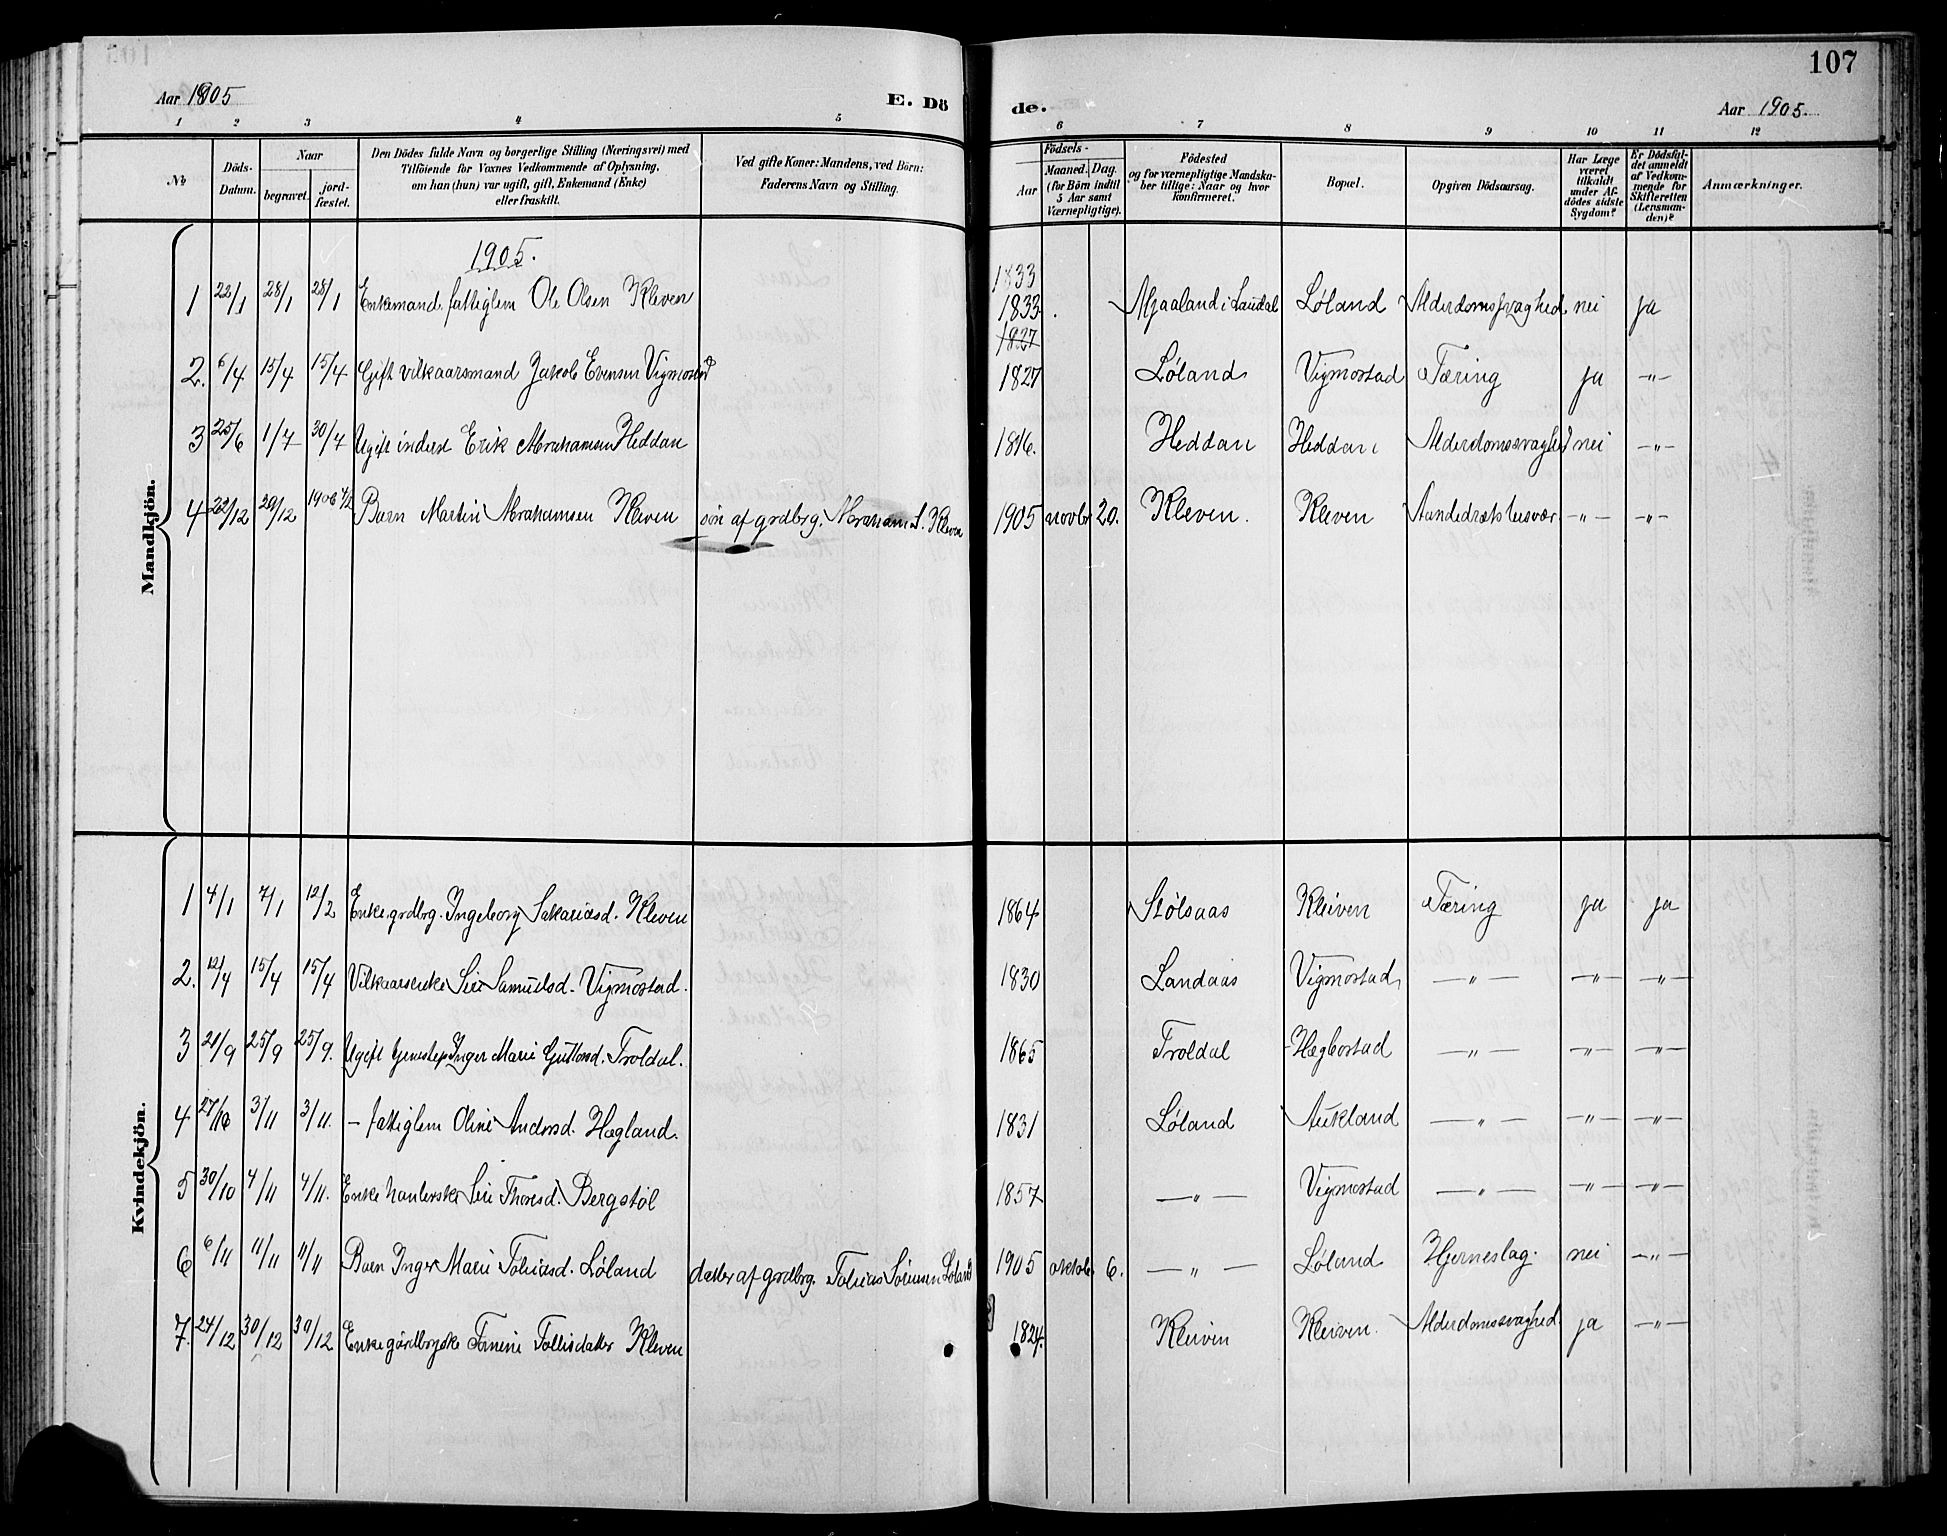 107
Aar 1905 E. Dö de. Aar 1905.
1 2 3 4 5 6 7 8 9 10 11 12
No. Döds-Datum. Naar begravet. jord-fæstet. Den Dödes fulde Navn og borgerlige Stilling (Næringsvei) med Tilföiende for Voxnes Vedkommende af Oplysning, om han (hun) var ugift, gift, Enkemand (Enke) eller fraskilt. Ved gifte Koner: Mandens, ved Börn: Faderens Navn og Stilling. Födsels- Aar Maaned. Dag. (for Börn indtil 5 Aar samt Værnepligtige). Födested og for værnepligtige Mandskaber tillige: Naar og hvor konfirmeret. Bopæl. Opgiven Dödsaarsag. Har Læge været tilkaldt under Afdödes sidste Sygdom? Er Dödsfaldet anmeldt af Vedkommende for Skifteretten (Lensmanden)? Anmærkninger.
Mandkjön.
1905.
1833
1 22/1 28/1 28/1 Enkemand. fattiglem Ole Olsen Kleven 1833 Mjaaland i Laudal Løland Alderdomssvaghed nei ja
1827
2. 6/4 15/4 15/4 Gift vilkaarsmand Jakob Evensen Vigmostad 1827 Løland Vigmostad Tæring ja -"-
3 25/6 1/7 30/7 Ugift inderst Erik Abrahamsen Heddan 1816. Heddan Heddan Alderdomssvaghed nei -"-
4 22/12 29/12 1906 Barn Martin Abrahamsen Kleven søn af grdbrg. Abraham S. Kleven 1905 novbr 20. Kleven. Kleven Aandedræts -"- -"-
Kvindekjön.
1 4/1 7/1 12/2 Enke. grdbrg. Ingeborg Sakariasd. Kleven 1864 Stølsaas Kleiven Tæring ja ja
2. 12/4 15/4 15/4 Vilkaarsenke Siri Samuelsd. Vigmostad. 1830 Landaas Vigmostad -"- -"- -"-
3 20/9 25/9 25/9. Ugift Inger Marie Guttormsd. Troldal. 1865 Troldal Hægbostad -"- -"- -"-
4 27/10 3/11 3/11. - fattiglem Oline Andersd. Hægland. 1831 Løland Aukland -"- -"- -"-
5 30/10 4/11 4/11. Enke handlerske Siri Thoresd. Bergstøl 1857 -"- Vigmostad -"- -"- -"-
6 6/11 11/11 11/11 Barn Inger Marie Tobiasd. Løland datter af grdbrg. Tobias Sørensen Løland 1905 oktob 6. -"- Løland Hjerneslag. nei -"-
7. 24/12 30/12 30/12 Enke gårdbrgske Tomine Tollisdatter Kleven 1824. Kleiven Kleiven. Alderdomssvaghed. ja -"-